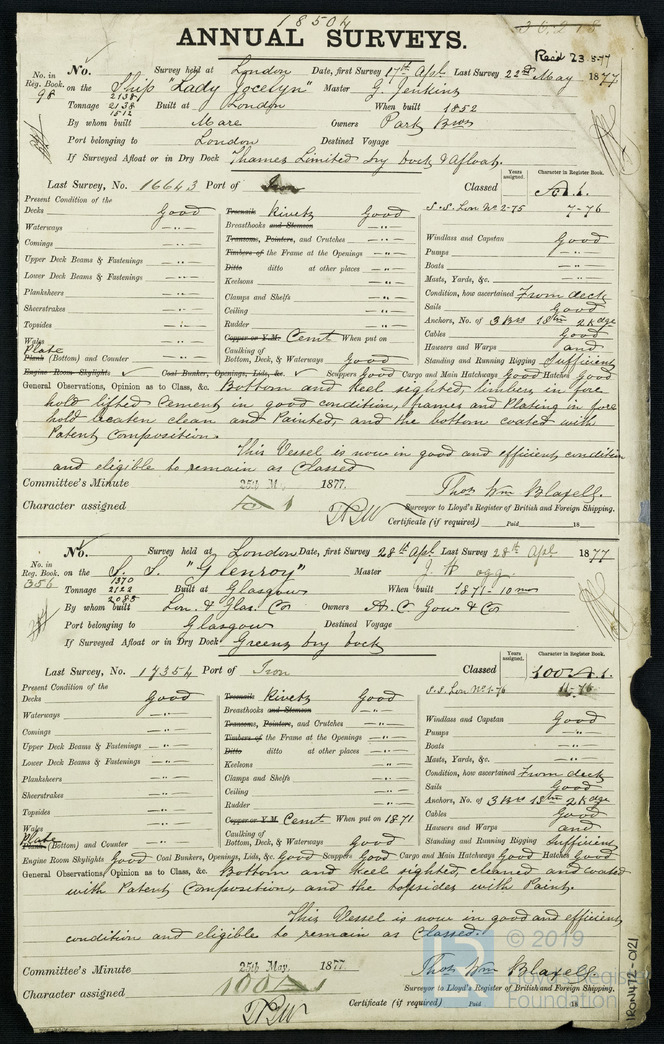 18504
ANNUAL SURVEYS.
Rec'd 23.5.77
No. Survey held at London Date, first Survey 17th Apl. Last Survey 22nd May 1877
No. in Reg. Book. 98 on the Ship "Lady Jocelyn" Master G. Jenkins
Tonnage 2138 1512 Built at London When built 1852
By whom built Mare Owners Park Bros
Port belonging to London Destined Voyage
If Surveyed Afloat or in Dry Dock Thames Limited dry dock & Afloat.
Last Survey, No. 16643 Port of Iron Classed Years assigned. Character in Register Book. A.1.
S.S. Lon No. 2-75 7-76
Present Condition of the
Decks Good
Waterways -"-
Comings -"-
Upper Deck Beams & Fastenings -"-
Lower Deck Beams & Fastenings -"-
Planksheers
Sheerstrakes -"-
Topsides -"-
Wales
Plate Plank (Bottom) and Counter -"-
Treenails Rivets Good
Breasthooks and Stemson -"-
Transoms, Pointers, and Crutches -"-
Timbers of the Frame at the Openings -"-
Ditto ditto at other places -"-
Keelsons -"-
Clamps and Shelfs -"-
Ceiling -"-
Rudder -"-
Copper or Y.M. Cemt When put on
Caulking of Bottom, Deck, & Waterways Good
Windlass and Capstan Good
Pumps -"-
Boats -"-
Masts, Yards, &c. -"-
Condition, how ascertained From deck
Sails Good
Anchors, No. of 3 Brs 1 Stm 2 Kedge
Cables Good
Hawsers and Warps and
Standing and Running Rigging Sufficient
Engine Room Skylights Coal Bunker, Openings, Lids, &c. Scuppers Good Cargo and Main Hatchways Good Hatches Good
General Observations, Opinion as to Class, &c. Bottom and keel sighted, limbers in fore
hold lifted Cement in good condition, frames and Plating in fore
hold beaten clean and Painted, and the bottom coated with
Patent Composition.
This Vessel is now in good and efficient condition
and eligible to remain as Classed
Committee's Minute 25th M 1877. Thos Wm Blaxell.
Character assigned A 1 Surveyor to Lloyd's Register of British and Foreign Shipping.
Certificate (if required) Paid 18
No. Survey held at London Date, first Survey 28th Apl. Last Survey 28th Apl 1877
No. in Reg. Book. 356 on the S. S. "Glenroy" Master
Tonnage 1370 2122 2085 Built at Glasgow When built 1871-10mo
By whom built Lon. & Glas. Co Owners A. C. Gow & Co
Port belonging to Glasgow Destined Voyage
If Surveyed Afloat or in Dry Dock Greens dry dock
Last Survey, No. 17354 Port of Iron Classed Years assigned. Character in Register Book. 100 A.1.
S.S. Lon No. 1-76 11-76
Present Condition of the
Decks Good
Waterways -"-
Comings -"-
Upper Deck Beams & Fastenings -"-
Lower Deck Beams & Fastenings -"-
Planksheers -"-
Sheerstrakes -"-
Topsides -"-
Wales
Plate Plank (Bottom) and Counter -"-
Treenails Rivets Good
Breasthooks and Stemson -"-
Transoms, Pointers, and Crutches -"-
Timbers of the Frame at the Openings -"-
Ditto ditto at other places -"-
Keelsons -"-
Clamps and Shelfs -"-
Ceiling -"-
Rudder -"-
Copper or Y.M. Cemt When put on 1871
Caulking of Bottom, Deck, & Waterways Good
Windlass and Capstan Good
Pumps -"-
Boats -"-
Masts, Yards, &c. -"-
Condition, how ascertained From deck
Sails Good
Anchors, No. of 3 Brs 1 Stm 2 Kdge
Cables Good
Hawsers and Warps and
Standing and Running Rigging Sufficient
Engine Room Skylights Good Coal Bunkers, Openings, Lids, &c. Good Scuppers Good Cargo and Main Hatchways Good Hatches Good
General Observations, Opinion as to Class, &c. Bottom and keel sighted, cleaned and coated
with Patent Composition, and the topsides with Paint.
This Vessel is now in good and efficient
condition and eligible to remain as Classed.
Committee's Minute 25th May. 1877. Thos Wm Blaxell.
Character assigned 100 A 1 Surveyor to Lloyd's Register of British and Foreign Shipping.
Certificate (if required) Paid 18
© 2019
Lloyd's Register
Foundation
IRON472-0121